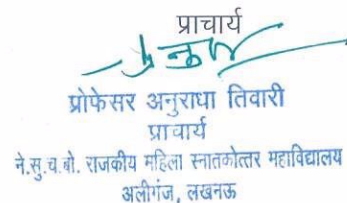 प्राचार्य
प्रोफेसर अनुराधा तिवारी
प्राचार्य
ने.सु.च.बो. राजकीय महिला स्नातकोत्तर महाविद्यालय
अलीगंज, लखनऊ